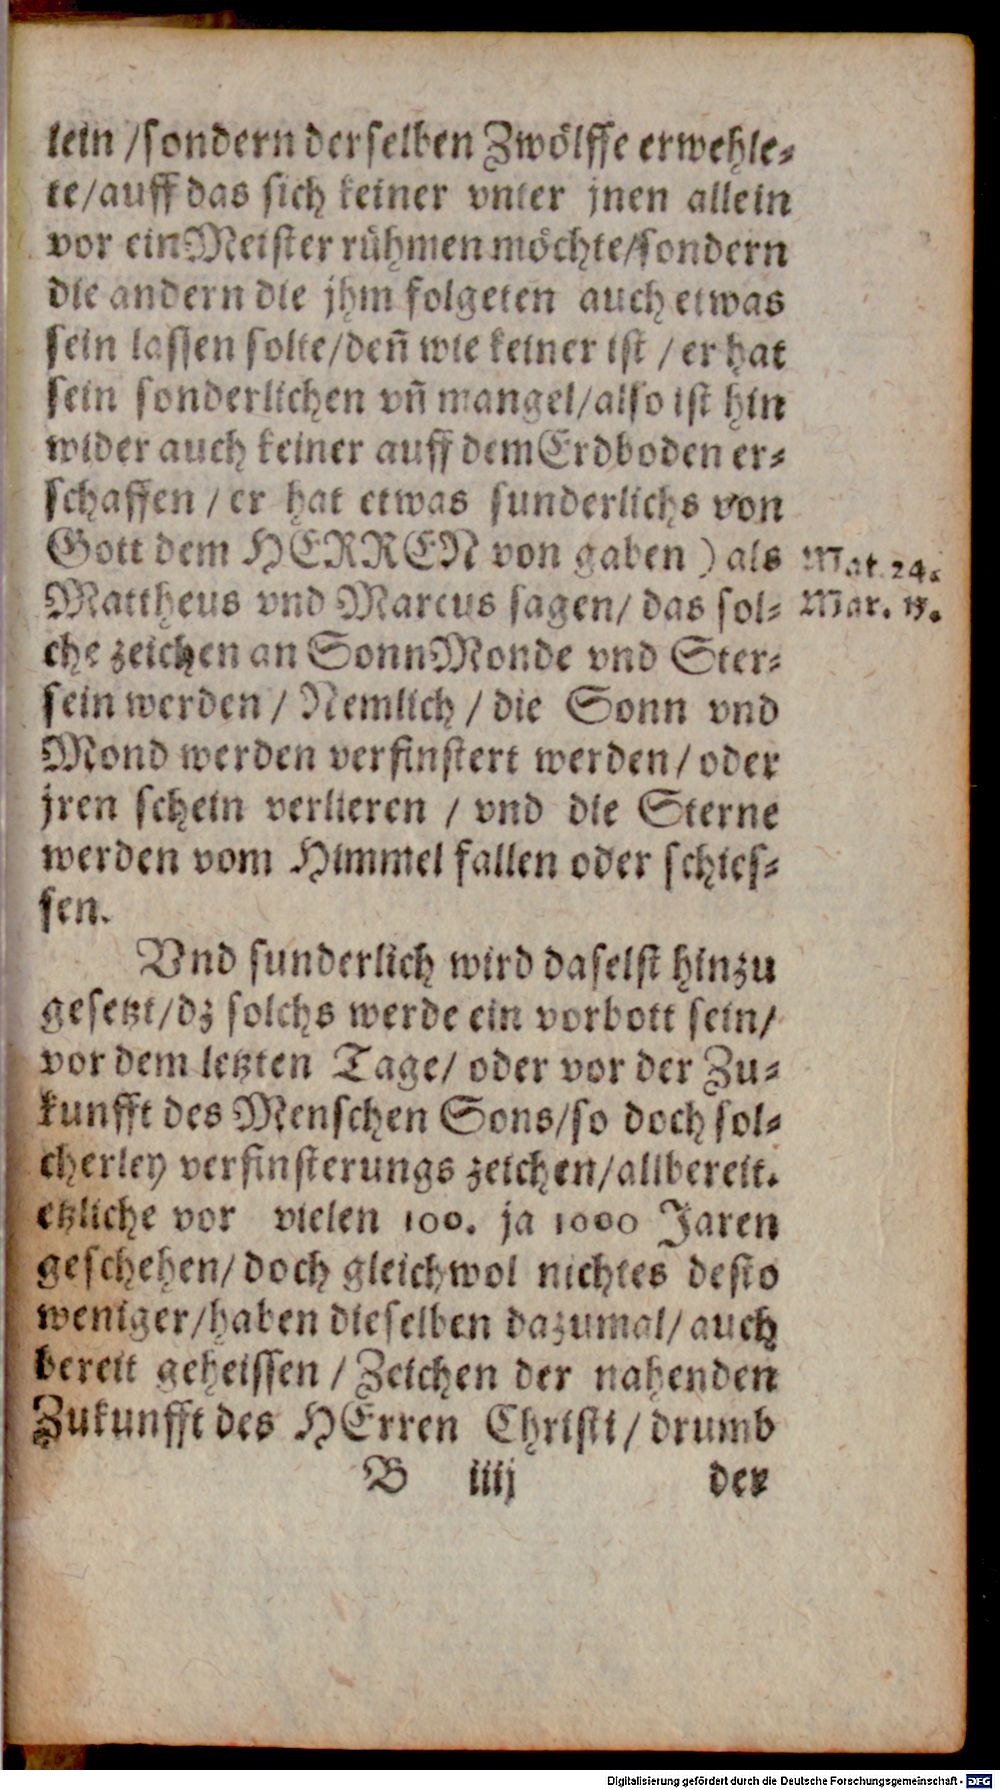 lein /sondern derselben Zwölffe erwehle-
te/auff das sich keiner vnter jnen allein
vor ein Meister rühmen möchte/sondern
die andern die jhm folgeten auch etwas
sein lassen solte/deñ wie keiner ist / er hat
sein sonderlichen vñ mangel/also ist hin
wider auch keiner auff dem Erdboden er-
schaffen / er hat etwas sunderlichs von
Gott dem HERREN von gaben ) als
Mat. 24.
Mattheus vnd Marcus sagen/ das sol-
Mar. 13.
che zeichen an Sonn Monde vnd Ster-
sein werden / Nemlich / die Sonn vnd
Mond werden verfinstert werden/ oder
jren schein verlieren / vnd die Sterne
werden vom Himmel fallen oder schies-
sen.
Vnd sunderlich wird daselst hinzu
gesetzt/dz solchs werde ein vorbott sein/
vor dem letzten Tage/ oder vor der Zu-
kunfft des Menschen Sons/so doch sol-
cherley verfinsterungs zeichen/allbereit.
etzliche vor vielen 100. ja 1000 Jaren
geschehen/ doch gleichwol nichtes desto
weniger/haben dieselben dazumal/ auch
bereit geheissen / Zeichen der nahenden
Zukunfft des HErren Christi / drumb
B iiij der
Digitalisierung gefördert durch die Deutsche Forschungsgemeinschaft - DFG